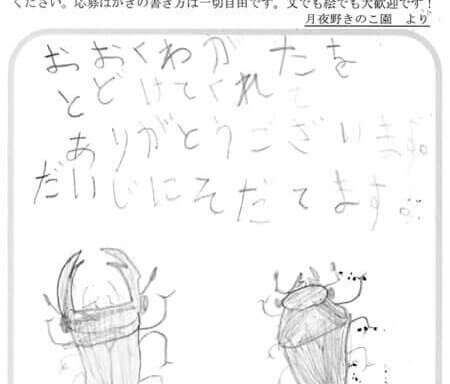 ください。応募はがきの書き方は一切自由です。文でも絵でも大歓迎です!
月夜野きのこ園 より
おおくわがたを
とどけてくれて
ありがとうございます。
だいじにそだてます。